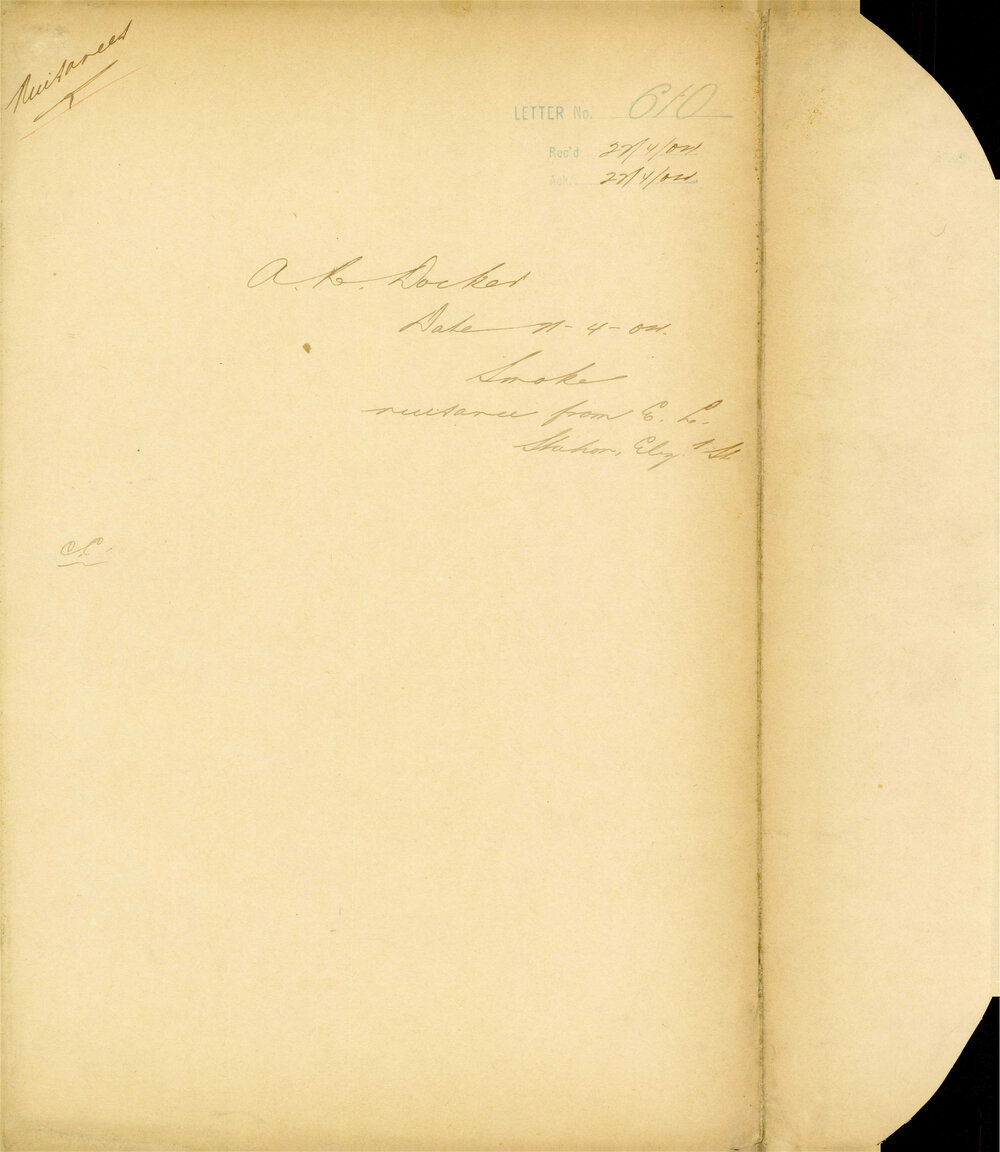 Nuisances
LETTER No. 610
Rec'd 22/4/04
Ack. 22/4/04
A. R. Docker
Date 21-4-04.
Smoke
nuisance from E. L.
Station, Eliz. St